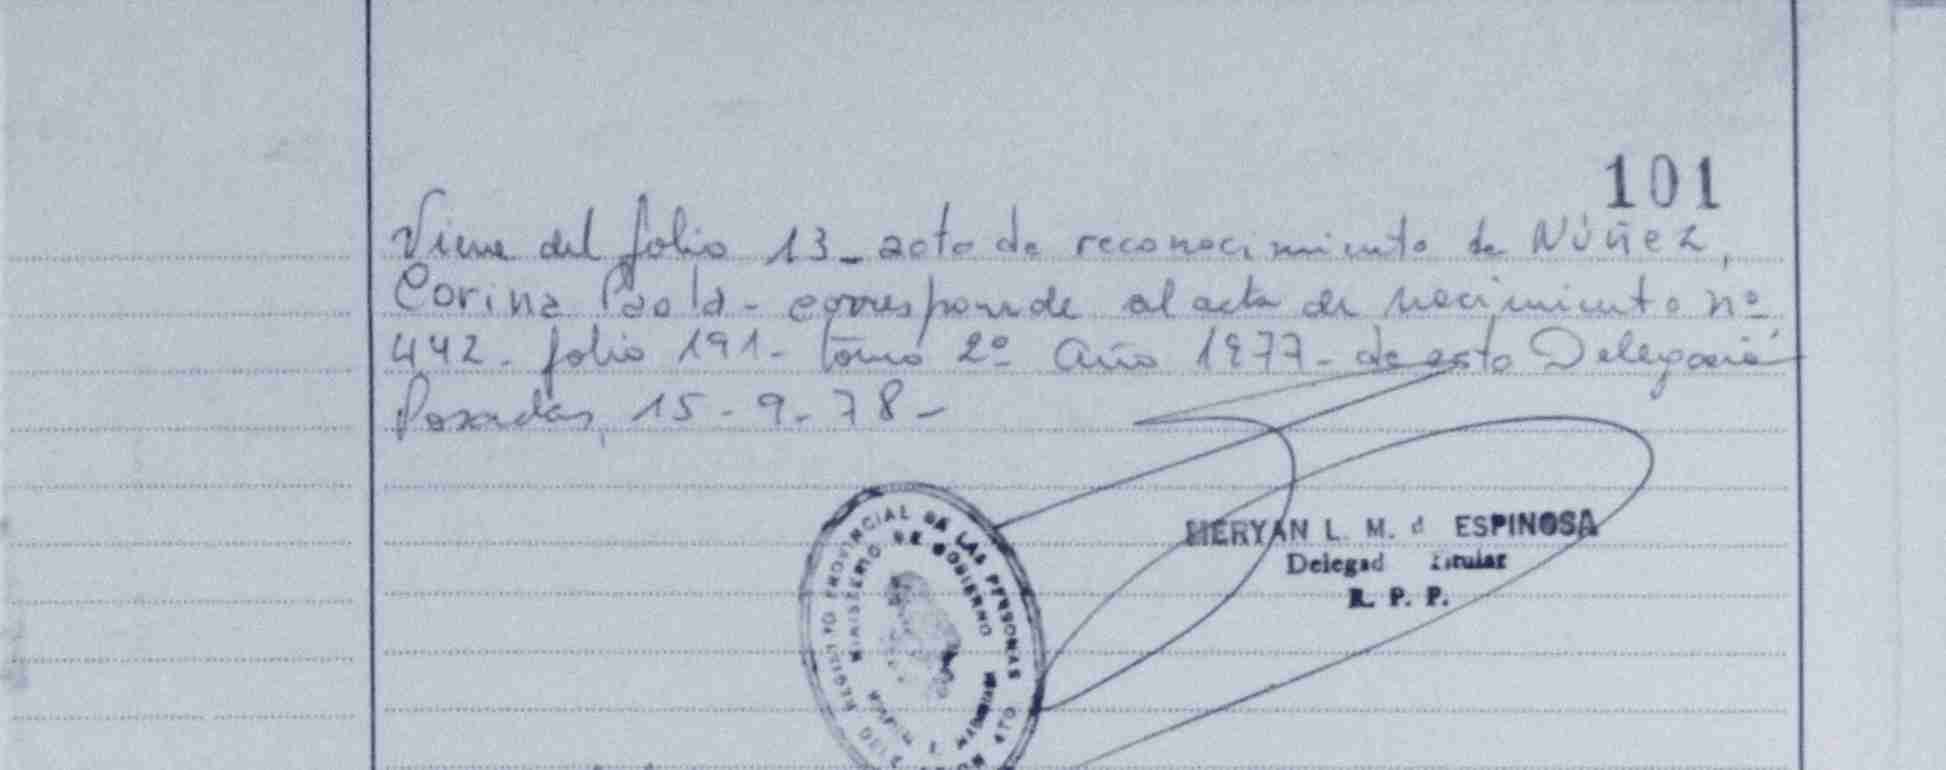 101
Viene del folio 13_ acta de reconocimiento de Núñez,
Corina Paola - corresponde al acta de nacimiento nº
442 - folio 191 - tomo 2º año 1977 - de esta
Posadas, 15 - 9 - 78 -
REGISTRO PROVINCIAL DE LAS PERSONAS
MINISTERIO DE GOBIERNO
MERYAN L. M. d ESPINOSA
Delegad Titular
R. P. P.